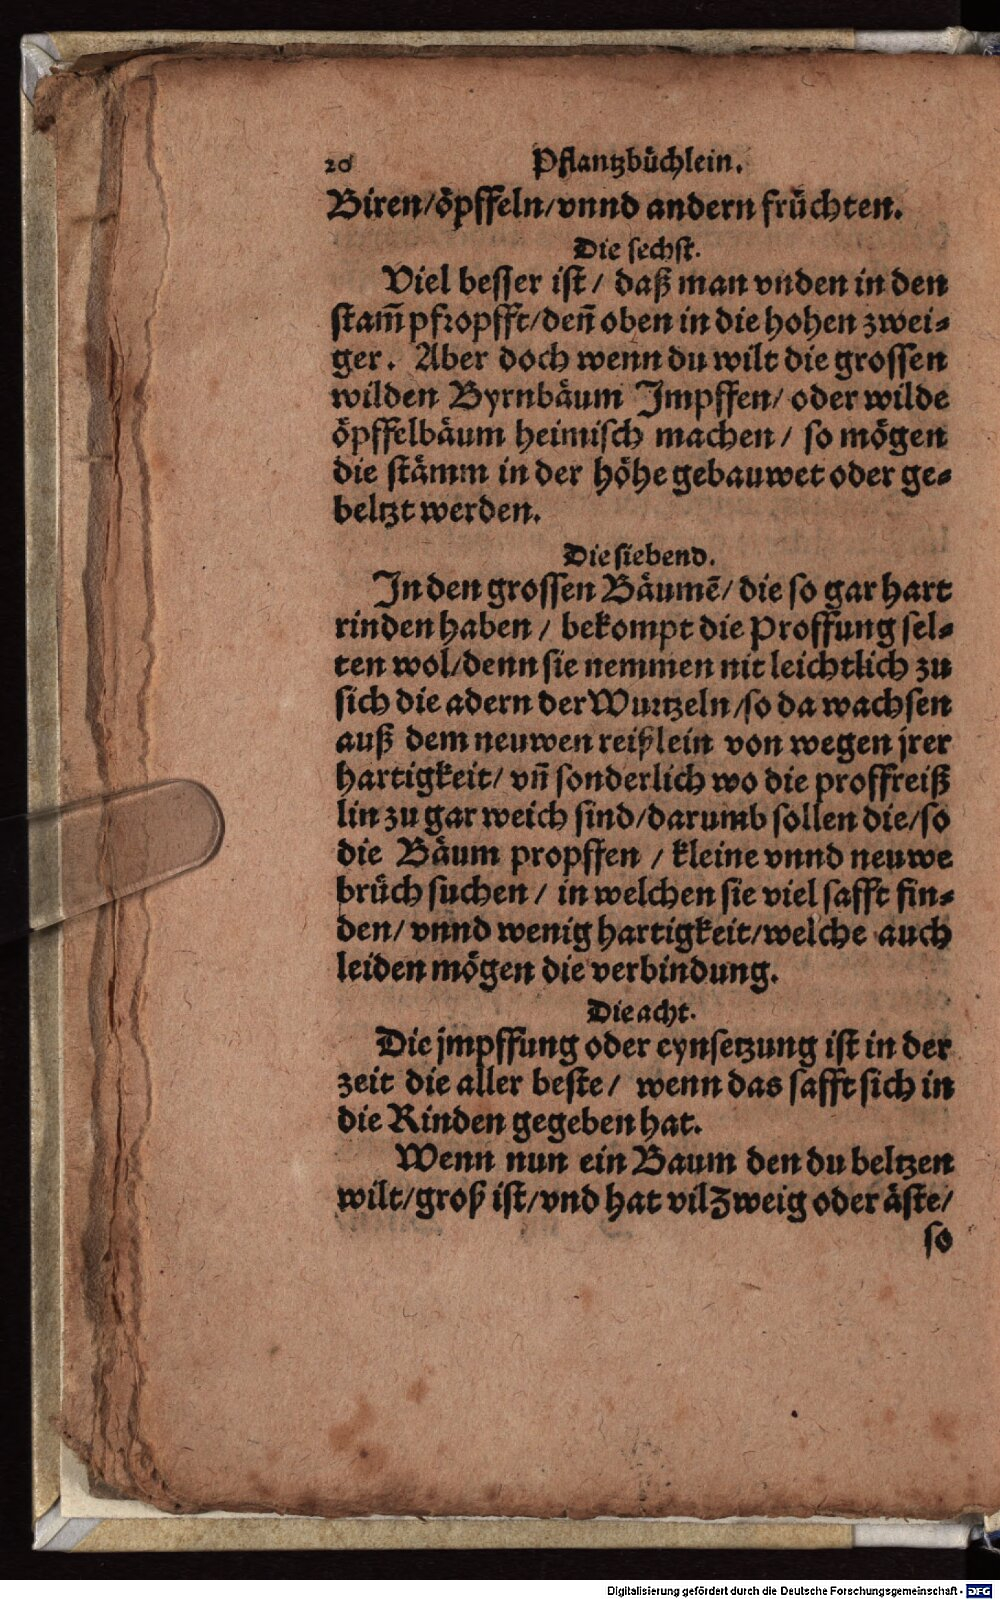 20 Pflantzbüchlein.
Biren/öpffeln/vnnd andern früchten.
Die sechst.
Viel besser ist/ daß man vnden in den
stam̃ pfropfft/deñ oben in die hohen zwei-
ger. Aber doch wenn du wilt die grossen
wilden Byrnbäum Jmpffen/ oder wilde
öpffelbäum heimisch machen/ so mögen
die stämm in der höhe gebauwet oder ge-
beltzt werden.
Die siebend.
Jn den grossen Bäumẽ/ die so gar hart
rinden haben/ bekompt die Proffung sel-
ten wol/denn sie nemmen nit leichtlich zu
sich die adern der Wurtzeln/so da wachsen
auß dem neuwen reißlein von wegen jrer
hartigkeit/ vñ sonderlich wo die proffreiß
lin zu gar weich sind/darumb sollen die/so
die Bäum propffen / kleine vnnd neuwe
brüch suchen / in welchen sie viel safft fin-
den/ vnnd wenig hartigkeit/welche auch
leiden mögen die verbindung.
Die acht.
Die jmpffung oder eynsetzung ist in der
zeit die aller beste/ wenn das safft sich in
die Rinden gegeben hat.
Wenn nun ein Baum den du beltzen
wilt/groß ist/vnd hat vil Zweig oder äste/
so
Digitalisierung gefördert durch die Deutsche Forschungsgemeinschaft - DFG